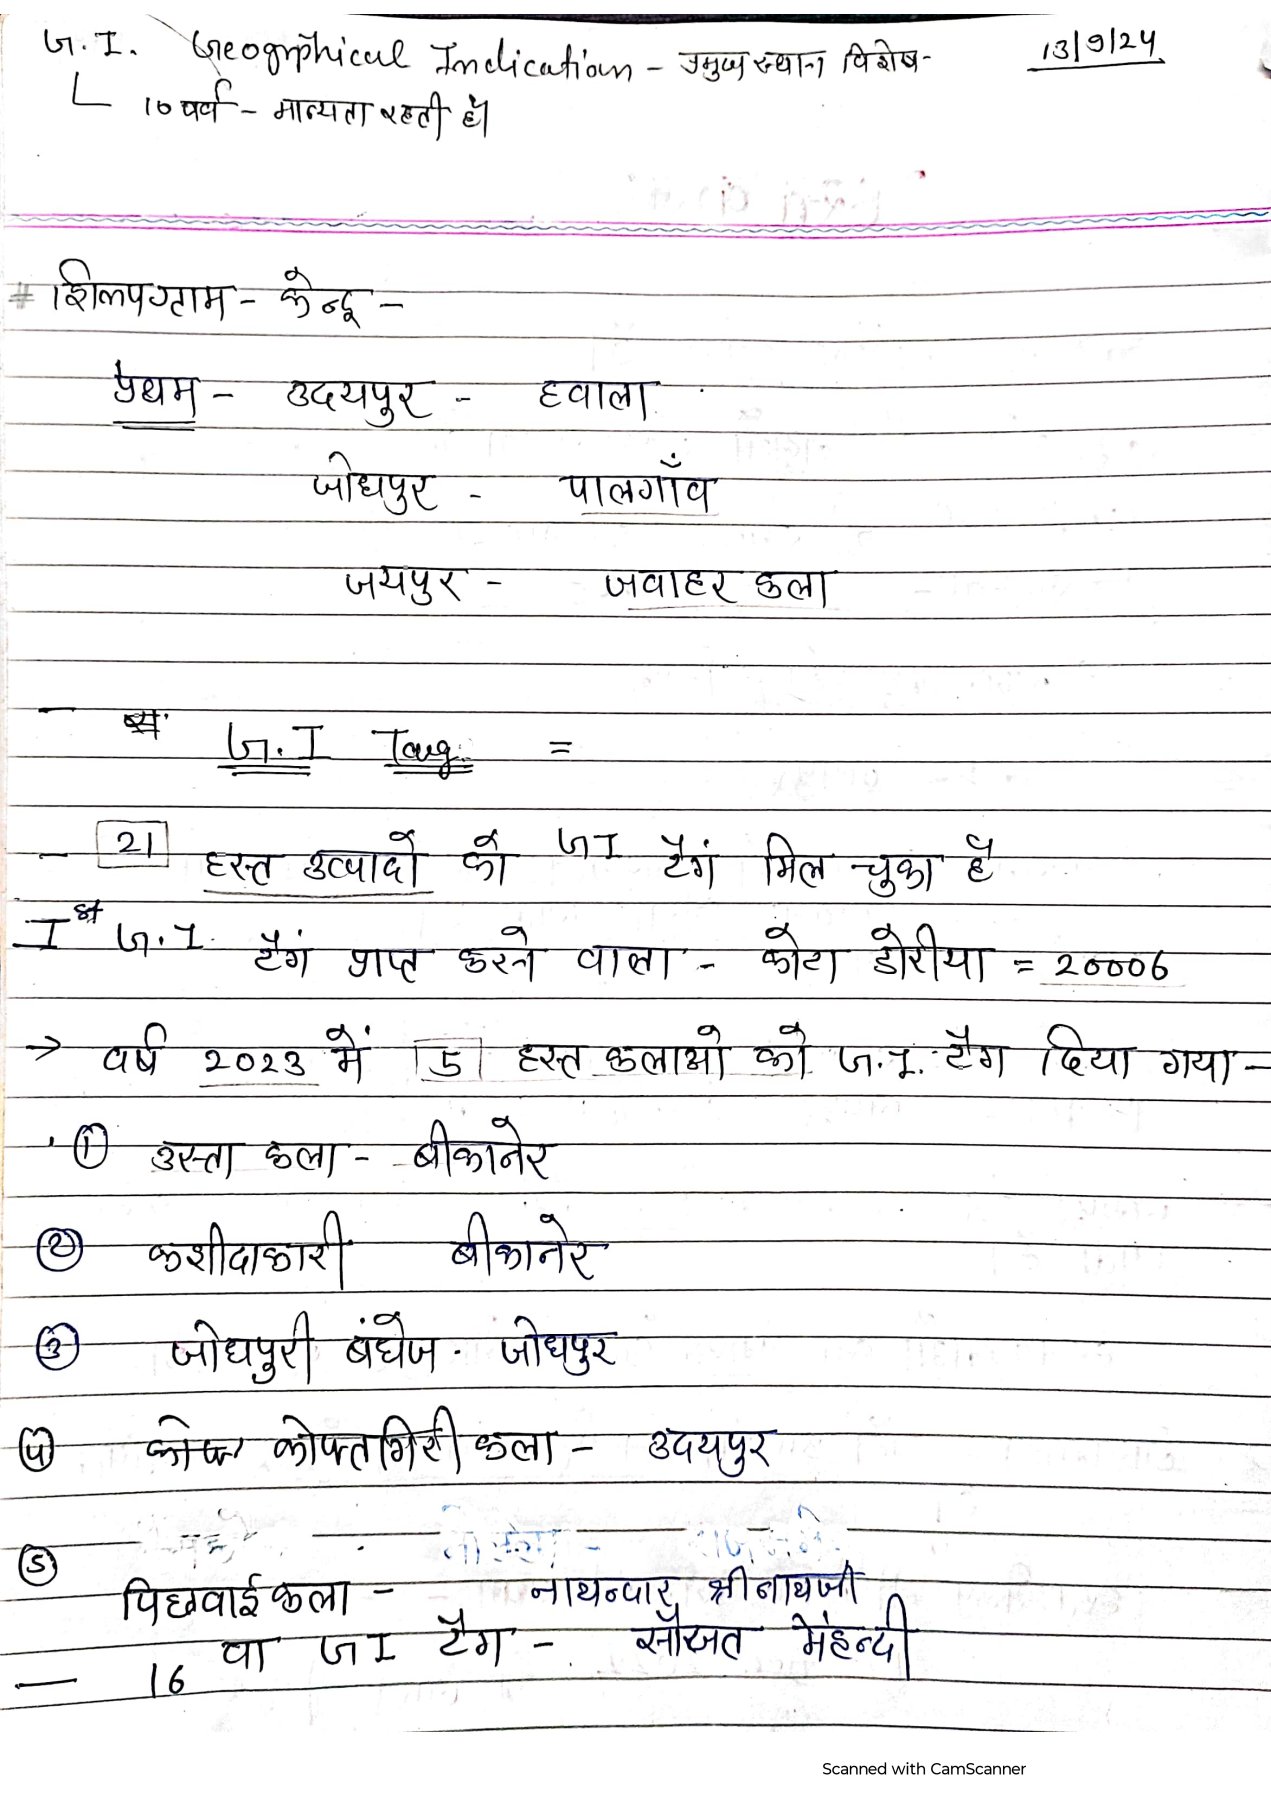 G.I. Geogrphical Indication - प्रमुख स्थान विशेष-
13/9/24
10 वर्ष - मान्यता रहती है।
# शिल्पग्राम - केन्द्र -
प्रथम - उदयपुर - हवाला
जोधपुर - पालगाँव
जयपुर - जवाहर कला
- G.I Tag =
- 21 हस्त उत्पादो को GI टैगं मिल चुका है
Ist G.I. टैगं प्राप्त करने वाला - कोटा डोरीया = 20006
→ वर्ष 2023 में 5 हस्त कलाओ को G.I. टैग दिया गया -
① उस्ता कला - बीकानेर
② कशीदाकारी बीकानेर
③ जोधपुरी बंधेज - जोधपुर
④ कोफ्त कोफ्तगिरी कला - उदयपुर
⑤ पिछवाई कला - नाथव्दार श्रीनाथजी
- 16 वा GI टैग - सौजत मेंहन्दी
Scanned with CamScanner